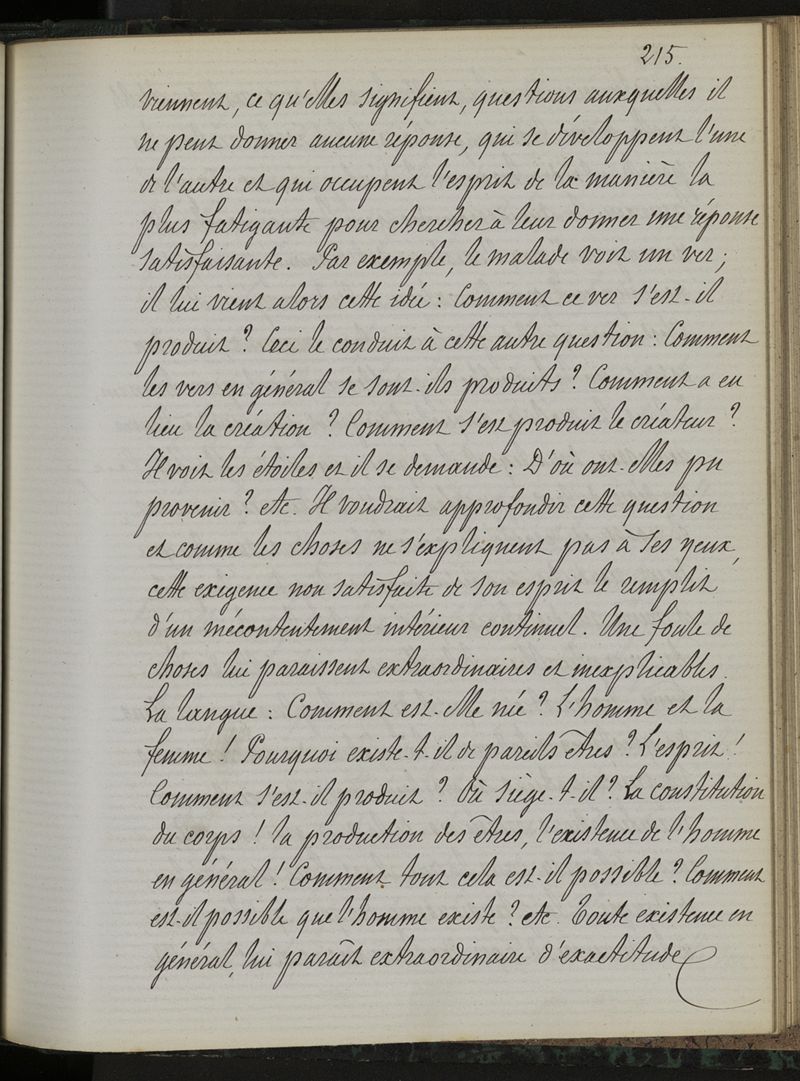 215.
viennent, ce qu'elles signifient, questions auxquelles il
ne peut donner aucune réponse, qui se développent l'une
de l'autre et qui occupent l'esprit de la manière la
plus fatigante pour chercher à leur donner une réponse
satisfaisante. Par exemple, le malade voit un ver;
il lui vient alors cette idée : Comment ce ver s'est-il
produit ? Ceci le conduit à cette autre question : Comment
les vers en général se sont-ils produits ? Comment a eu
lieu la création ? Comment s'est produit le créateur ?
Il voit les étoiles et il se demande : D'où ont-elles pu
provenir ? etc. Il voudrait approfondir cette question
et comme les choses ne s'expliquent pas à ses yeux,
cette exigence non satisfaite de son esprit le remplit
d'un mécontentement intérieur continuel. Une foule de
choses lui paraissent extraordinaires et inexplicables.
La langue : Comment est-elle née ? L'homme et la
femme ! Pourquoi existe-t-il de pareils êtres ? L'esprit !
Comment s'est-il produit ? Où siège-t-il ? La constitution
du corps ! la production des êtres, l'existence de l'homme
en général ! Comment tout cela est-il possible ? Comment
est-il possible que l'homme existe ? etc. Toute existence en
général, lui paraît extraordinaire d'exactitude